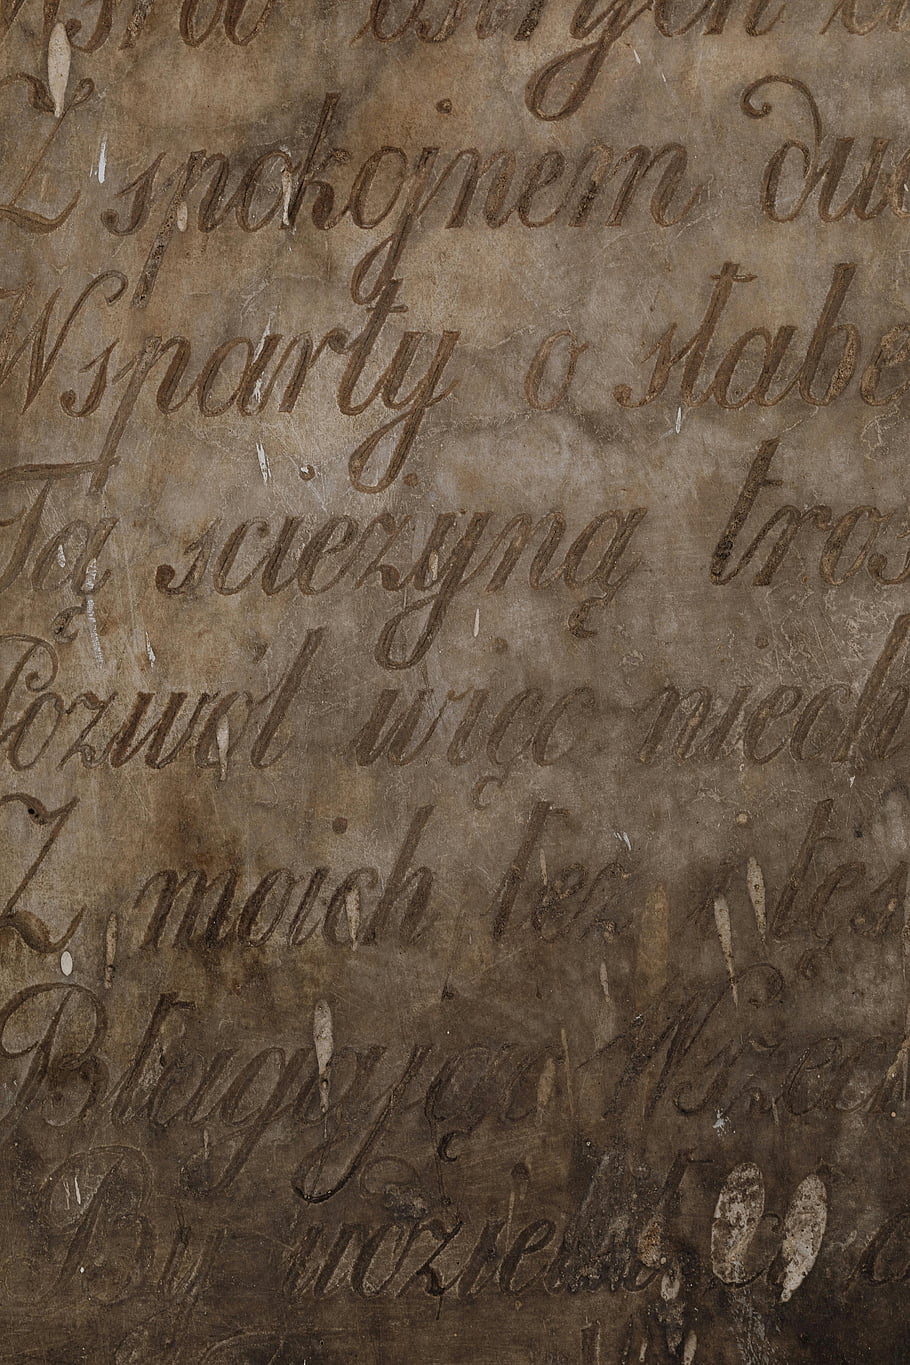 Z spokojnem duc
Wsparty o słabe
Tą scieżyną tros
Pozwól więc niech
Z moich łez i tęs
Błagając Wszec
By udzielił